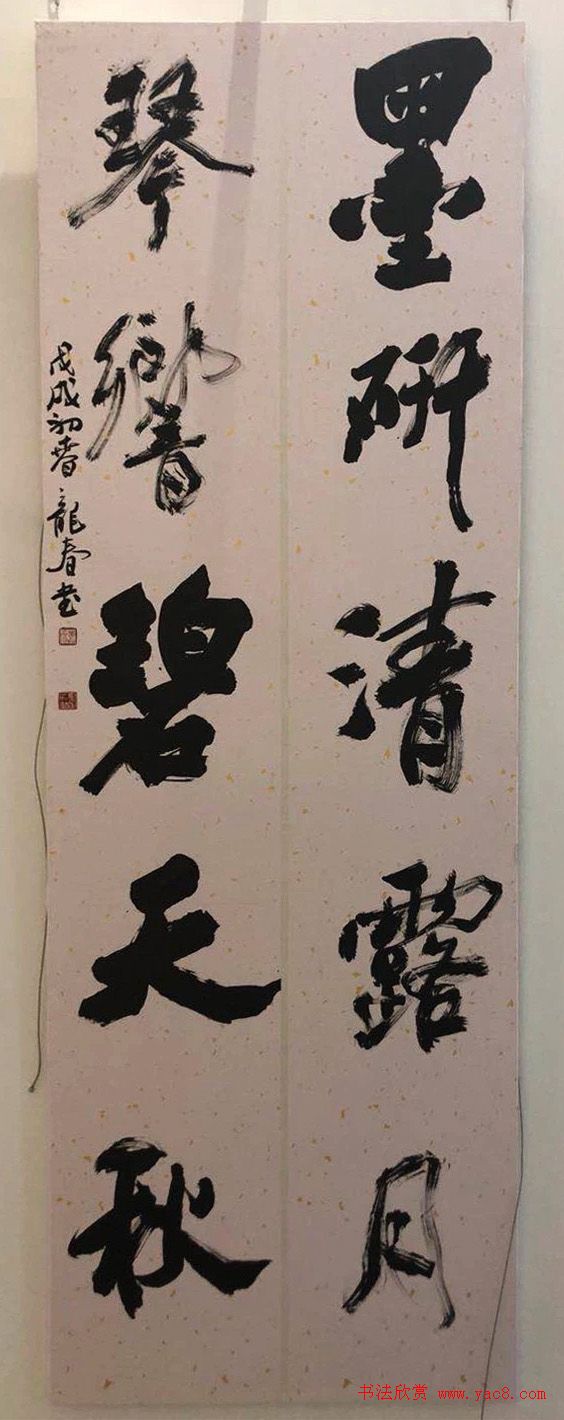 墨研清露月
琴響碧天秋
戊戌初春龍春書
书法欣赏 www.yac8.com